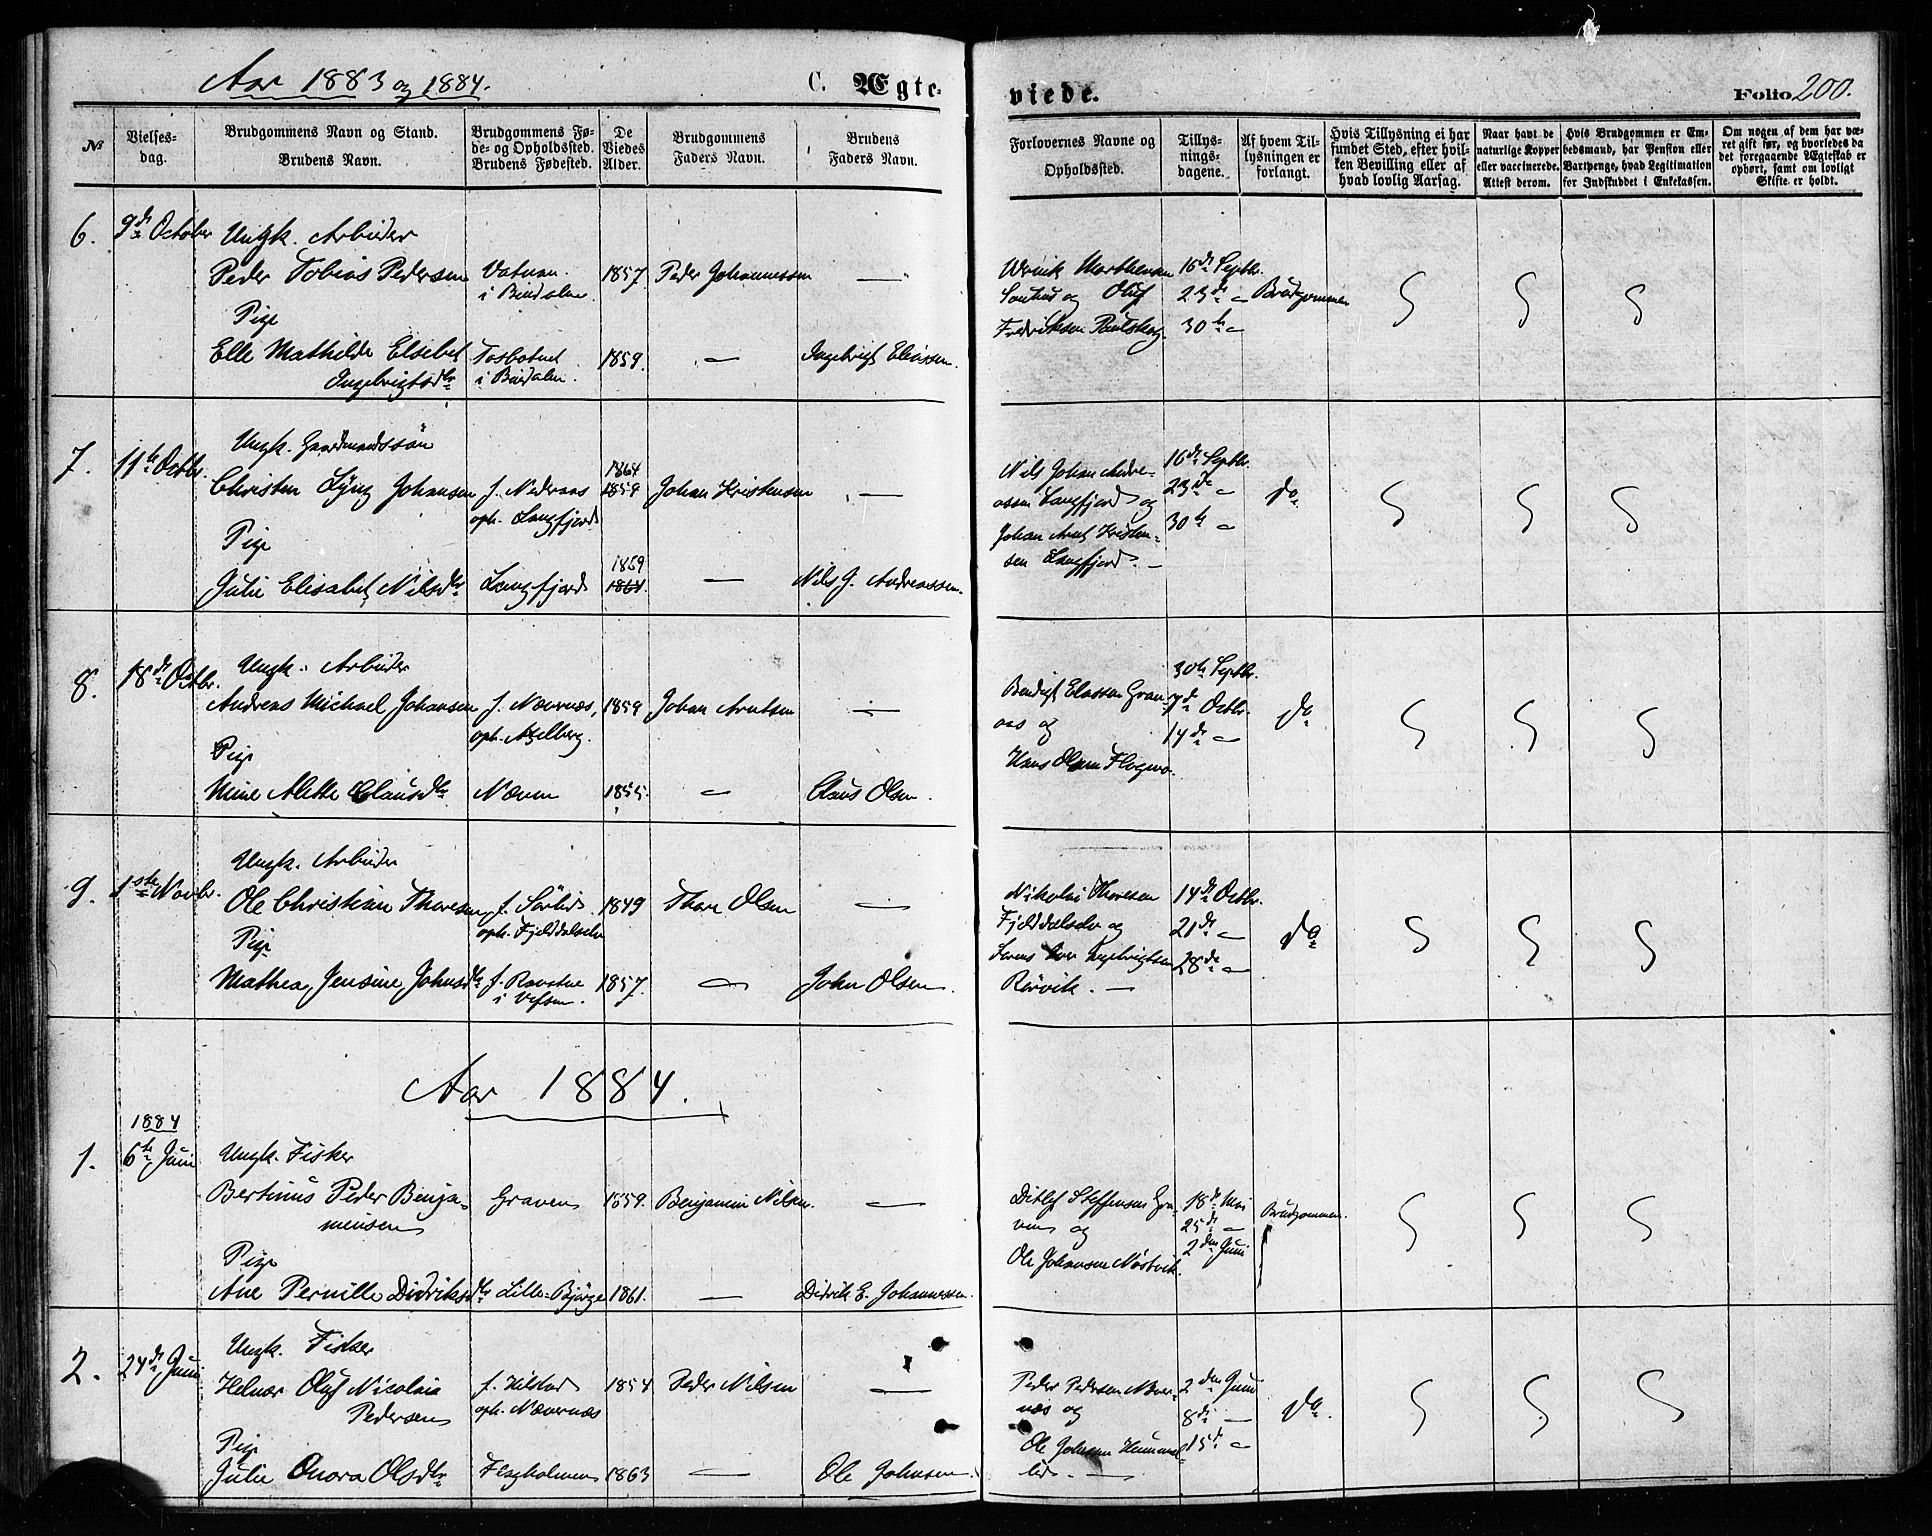 Aar 1883 og 1884.
C. Ægteviede.
Folio 200.
№
Vielsesdag.
Brudgommens Navn og Stand.
Brudens Navn.
Brudgommens Føde- og Opholdssted.
Brudens Fødested.
De Viedes Alder.
Brudgommens Faders Navn.
Brudens Faders Navn.
Forlovernes Navne og Opholdssted.
Tillysningsdagene.
Af hvem Tillysningen er forlangt.
Hvis Tillysning ei har fundet Sted, efter hvilken Bevilling eller af hvad lovlig Aarsag.
Naar havt de naturlige Kopper eller vaccinerede. Attest derom.
Hvis Brudgommen er Embedsmand, har Pension eller Vartpenge, hvad Legitimation for Indskuddet i Enkekassen.
Om nogen af dem har været gift før, og hvorledes da det foregaaende Ægteskab er ophørt, samt om lovligt Skifte er holdt.
6. 9de October
Ungk. Arbeider
Peder Tobias Pedersen
Vatnan i Bindalen
1857.
Peder Johannessen
—
Pige
Elle Mathilde Elsebet Ingebrigtsdtr
Tosbotnet i Bindalen.
1859.
—
Ingebrigt Eliassen.
Morthensen
og Oluf
Fredriksen
16de Septbr.
23de —
30te —
Brudgommen
7. 11te Octbr.
Ungk. Gaardmandssøn
Christen Lyng Johansen
f. Nedraas oph. Langfjord
1864
1859
Johan Kristensen
—
Pige
Julie Elisabet Nilsdtr
Langfjord
1859
1864.
—
Nils J. Andreassen.
Nils Johan Andreassen Langfjord og
Johan Arnt Kristensen Langfjord. —
16de Septbr.
23de —
30te —
do
8. 18de Octbr.
Ungk. Arbeider
Andreas Michael Johansen
f. Nævernæs, oph. Aselberg.
1859
Johan Arntsen
—
Pige
Mine Alette Clausdtr
Næven
1855.
—
Claus Olsen.
Bendigt Elassen Granaas og
Hans Olsen
30te Septbr.
7de Octbr.
14de —
do
9. 1ste Novbr.
Ungk. Arbeider
Ole Christian Thoresen
f. Sørlid oph. Fjelddalselv
1849
Thore Olsen
—
Pige
Mathea Jensine Johnsdtr
f. i Vefsen.
1857.
—
John Olsen.
Nikolai Thoresen Fjelddalselv og
Ingebrigtsen Rørvik. —
14de Octbr.
21de —
28de —
do
Aar 1884.
1884
1. 6te Juni
Ungk. Fisker
Bertinus Peder Benjaminsen
Graven
1859.
Benjamin Nilsen.
—
Pige
Ane Pernille Didriksdtr
Lille-Bjørge
1861.
—
Didrik E. Johannessen.
Ditlef Steffensen Graven og
Ole Johansen Nøstvik.
18de Mai
25de —
2den Juni
Brudgommen.
2. 24de Juni
Ungk. Fisker
Helmer Oluf Nicolai Pedersen
f. Hilstad oph. Nævernæs
1854
Peder Nilsen
—
Pige
Julie Onora Olsdtr
Flagholmen
1863
—
Ole Johnsen.
Peder Pedersen Nævernæs og
Ole Johnsen
2den Juni
8de —
15de —
do.